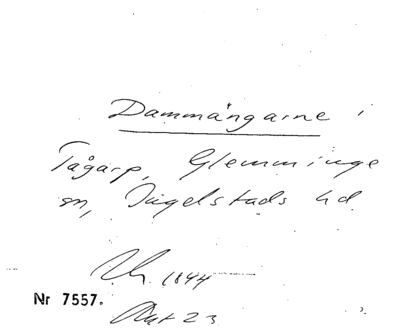 Dammängarne i
Tågarp, Glemminge
sn, Ingelstads hd
1844
Nr 7557.
Akt 23